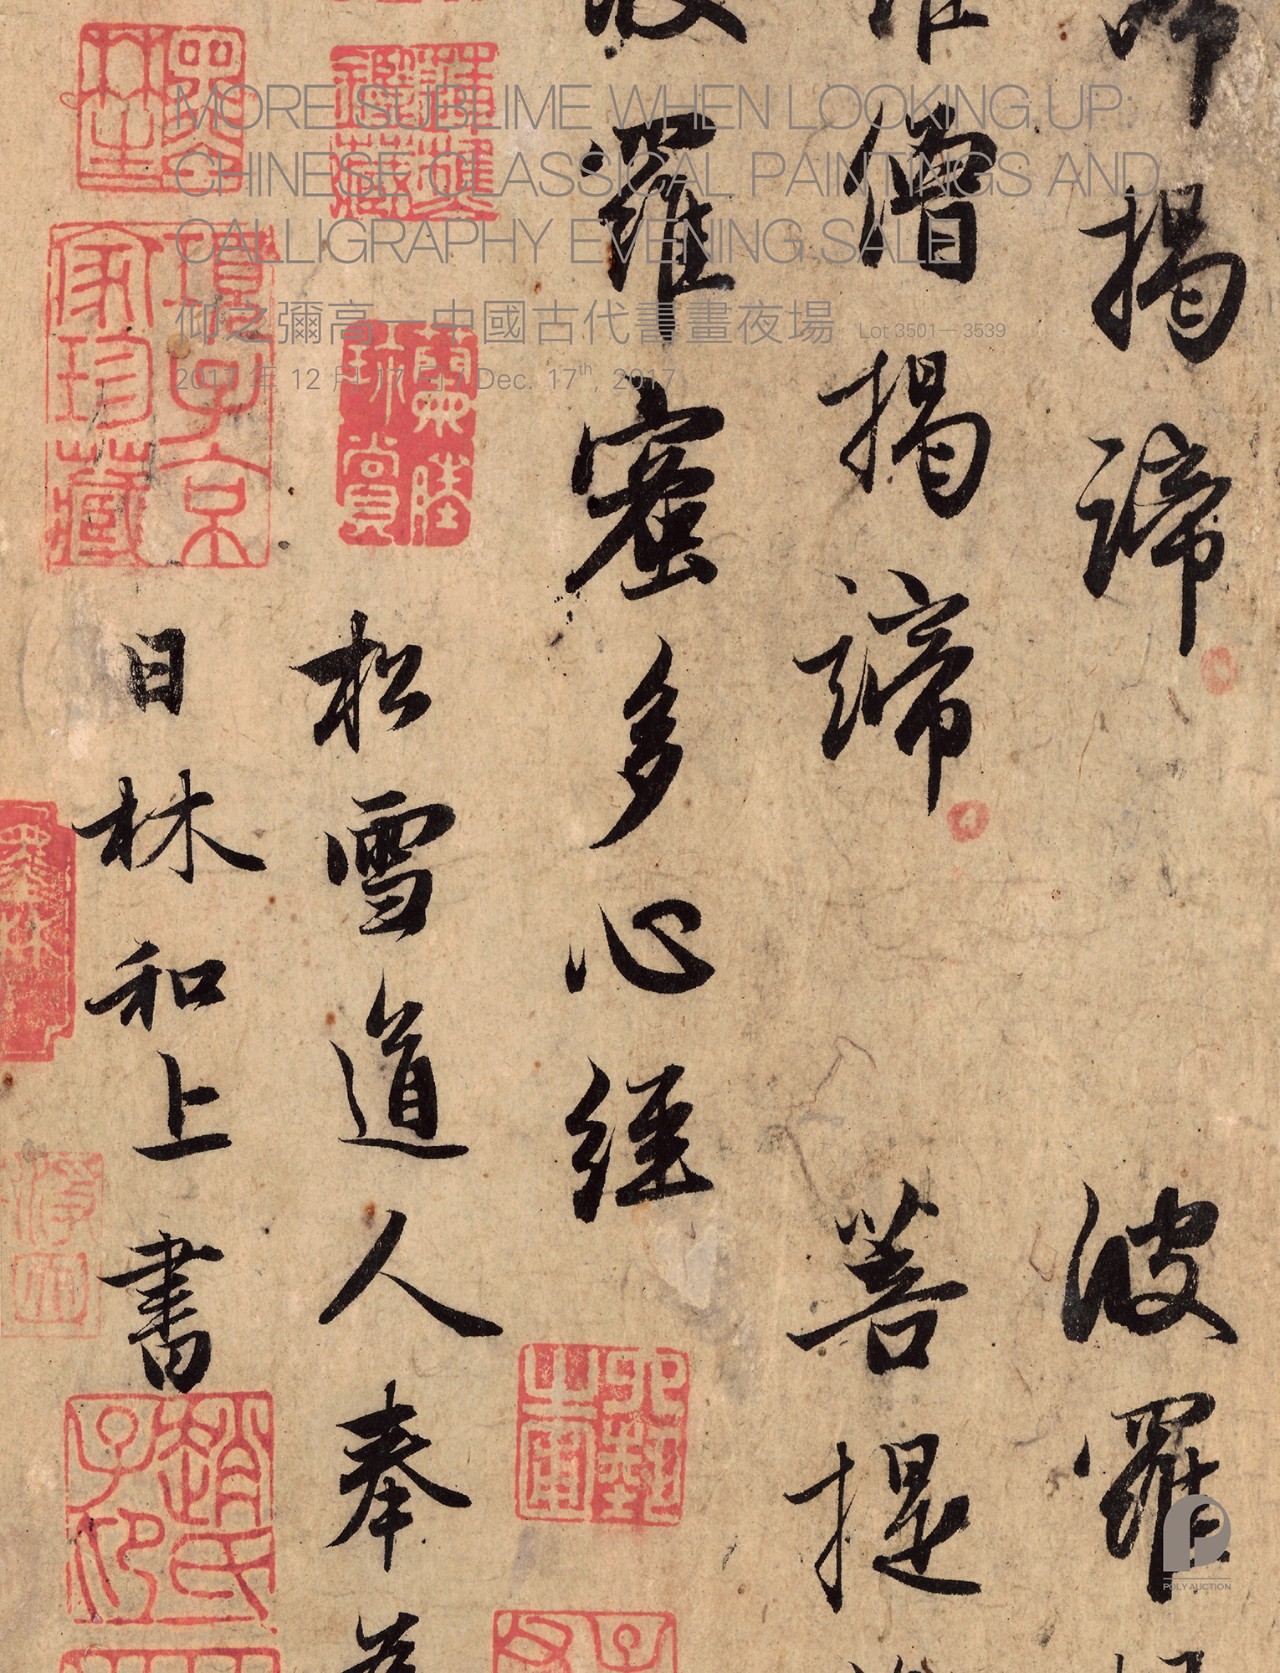 MORE SUBLIME WHEN LOOKING UP:
CHINESE CLASSICAL PAINTINGS AND
CALLIGRAPHY EVENING SALE
仰之彌高—中國古代書畫夜場 Lot 3501—3539
2017 年 12 月 17 日 / Dec. 17th, 2017
揭諦
波羅
僧揭諦
菩提
羅蜜多心經
松雪道人奉為
日林和上書
項子京家珍藏
趙氏子昂
POLY AUCTION